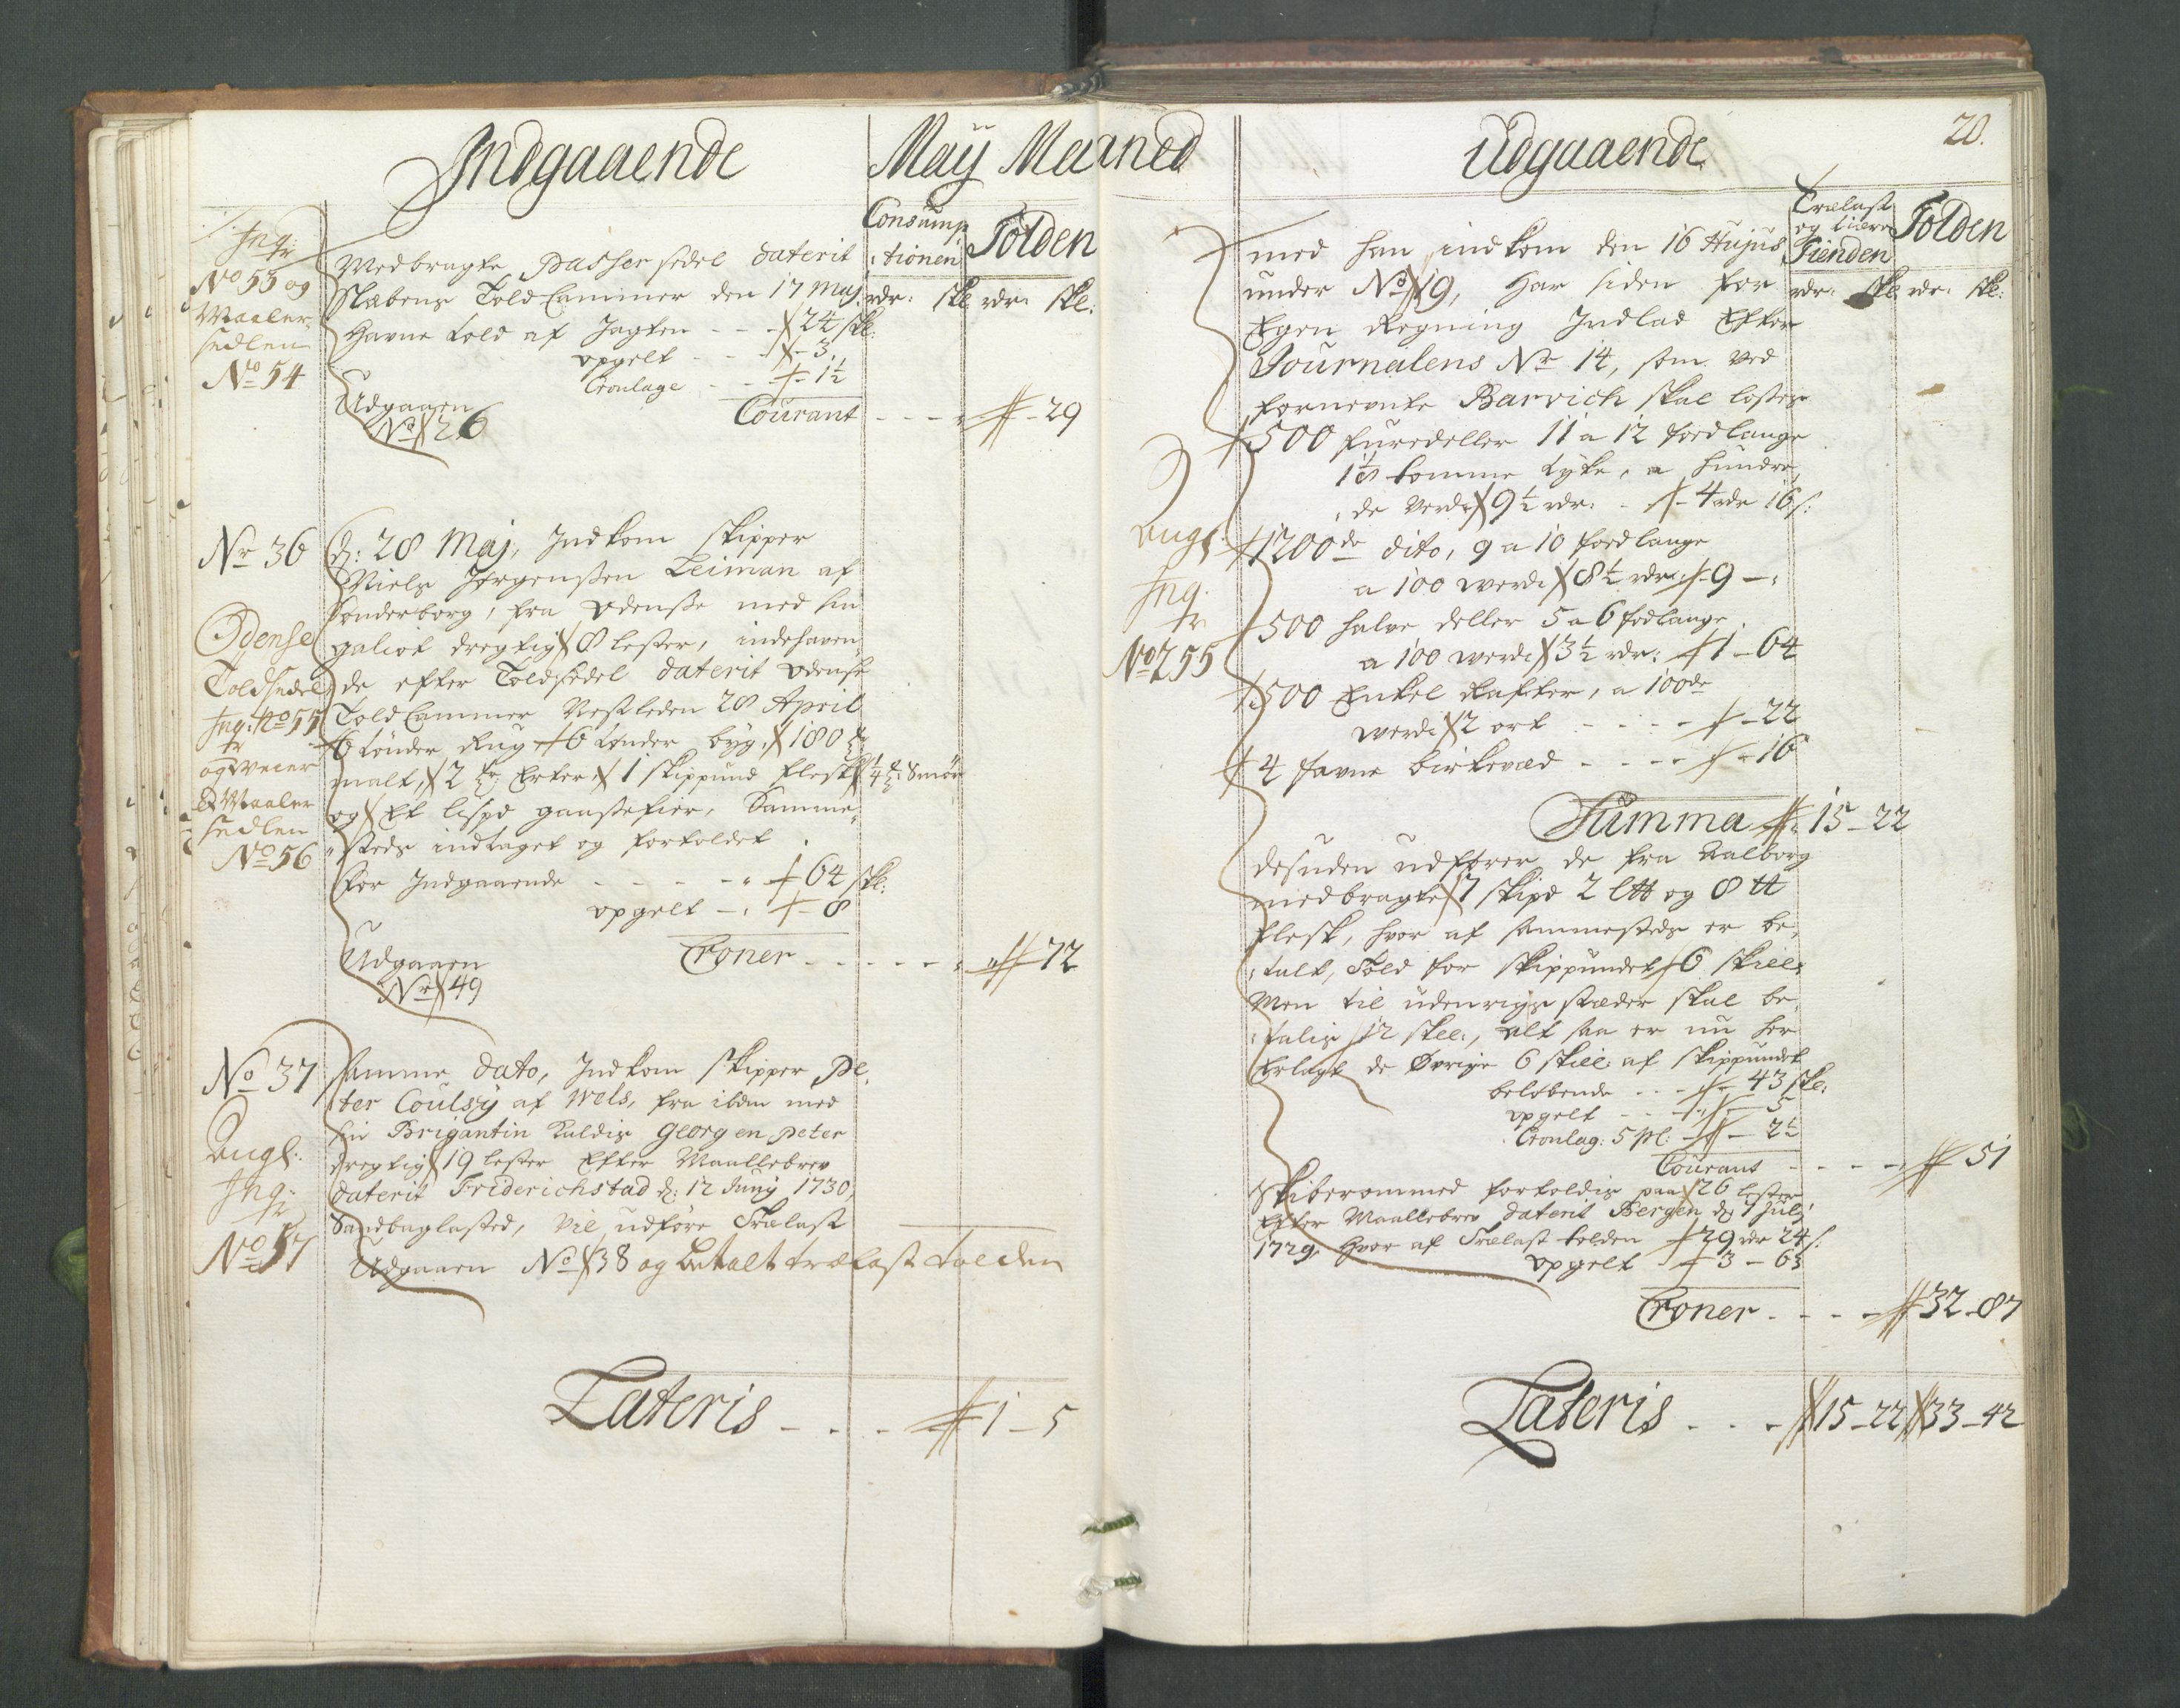 Indgaaende
May Maaned
Consump
:tionen
Tolden
rdr: ske rdr: ske:
Ing:
No 53 og
Maaler,
sedlen
No 54
Medbragte Passersedel daterit
Stabens Told Cammer den 17 Maj
Havne told af Jagten - - - 24 ske:
opgelt - - - 3.
Cronlage - - 1½
Udgaaen
No 26
Courant - - - 29
Nr 36
Odense
Toldsedel
Ing: No 55
og Veier
& Maaler
sedlen
No 56
d: 28 Maj, Indkom skipper
Niels Jørgensen Leiman af
Sønderborg, fra Odense med sin
galiot dregtig 8 lester, indehaven,
de efter Toldsedel daterit Odense
Told Cammer Nestleden 28 April
6 tønder Rug 6 tønder byg, 180
malt, 2 Erter, 1 skippund flesk ¼ Smør
og Et lispd gaassefier, Samme,
steds indtaget og fortoldet
for Indgaaende - - - - 64 ske:
opgelt - - 8
Udgaaen
Nr 49
Croner - - - - - 72
No 37
Angl:
Ing:
No 57
samme dato, Indkom skipper Pe,
ter Coulsy af Wels, fra ibdm med
sin Brigantin kaldis Georg en Peter
dregtig 19 lester Efter Maallebrev
daterit Friderichstad d: 12 Juny 1730,
Sandbaglasted, vil udføre Trælast
Udgaaen No 38 og betalt trælast tolden
Lateris - - - 1 - 5
Udgaaende
20.
Trælast
og tiære
Tienden
Tolden
rdr: ske rdr: ske:
med han indkom den 16 Hujus
under No 19, har siden for
Egen Regning Indlad Efter
Journalens Nr 14, som ved
fornevnte Barvich skal losses
500 furedeller 11 a 12 foed lange
tomme tyke, a hundre,
,de verdi 9½ rdr: - 4 rdr 16 s:
Angl:
Ing.
No 255
1200de dito, 9 a 10 foed lange
a 100 werdi 8½ rdr: 9 -
500 halve deller 5 a 6 fodlange
a 100 werdi 3½ rdr: 1 - 64
500 Enkel Rafter, a 100de
werdi 2 ort - - - - 22
4 favne birkeved - - - - 16
Summa 15 - 22
desuden udfører de fra Aalborg
medbragte 7 skipd 2 l℔ og 8 ℔
flesk, hvor af sammesteds er be,
:talt, Told for skippundet 6 skill:
Men til udenrigs stæder skal be,
:talis 12 skll:, alt saa er nu her
Erlagt de Øvrige 6 skill: af skippundet
beløbende - - - 43 ske:
opgelt - - - 5
Cronlag: 5 pC: - 2½
Courant - - - - 51
Skiberommed fortoldis paa 26 lester
Efter Maallebrev daterit Bergen d: 7 July
1729, hvor af Trælast tolden 29 rdr 24 s:
opgelt 3 - 63
Croner - - - - 32 - 87
Lateris - - - 15 - 22 33 - 42